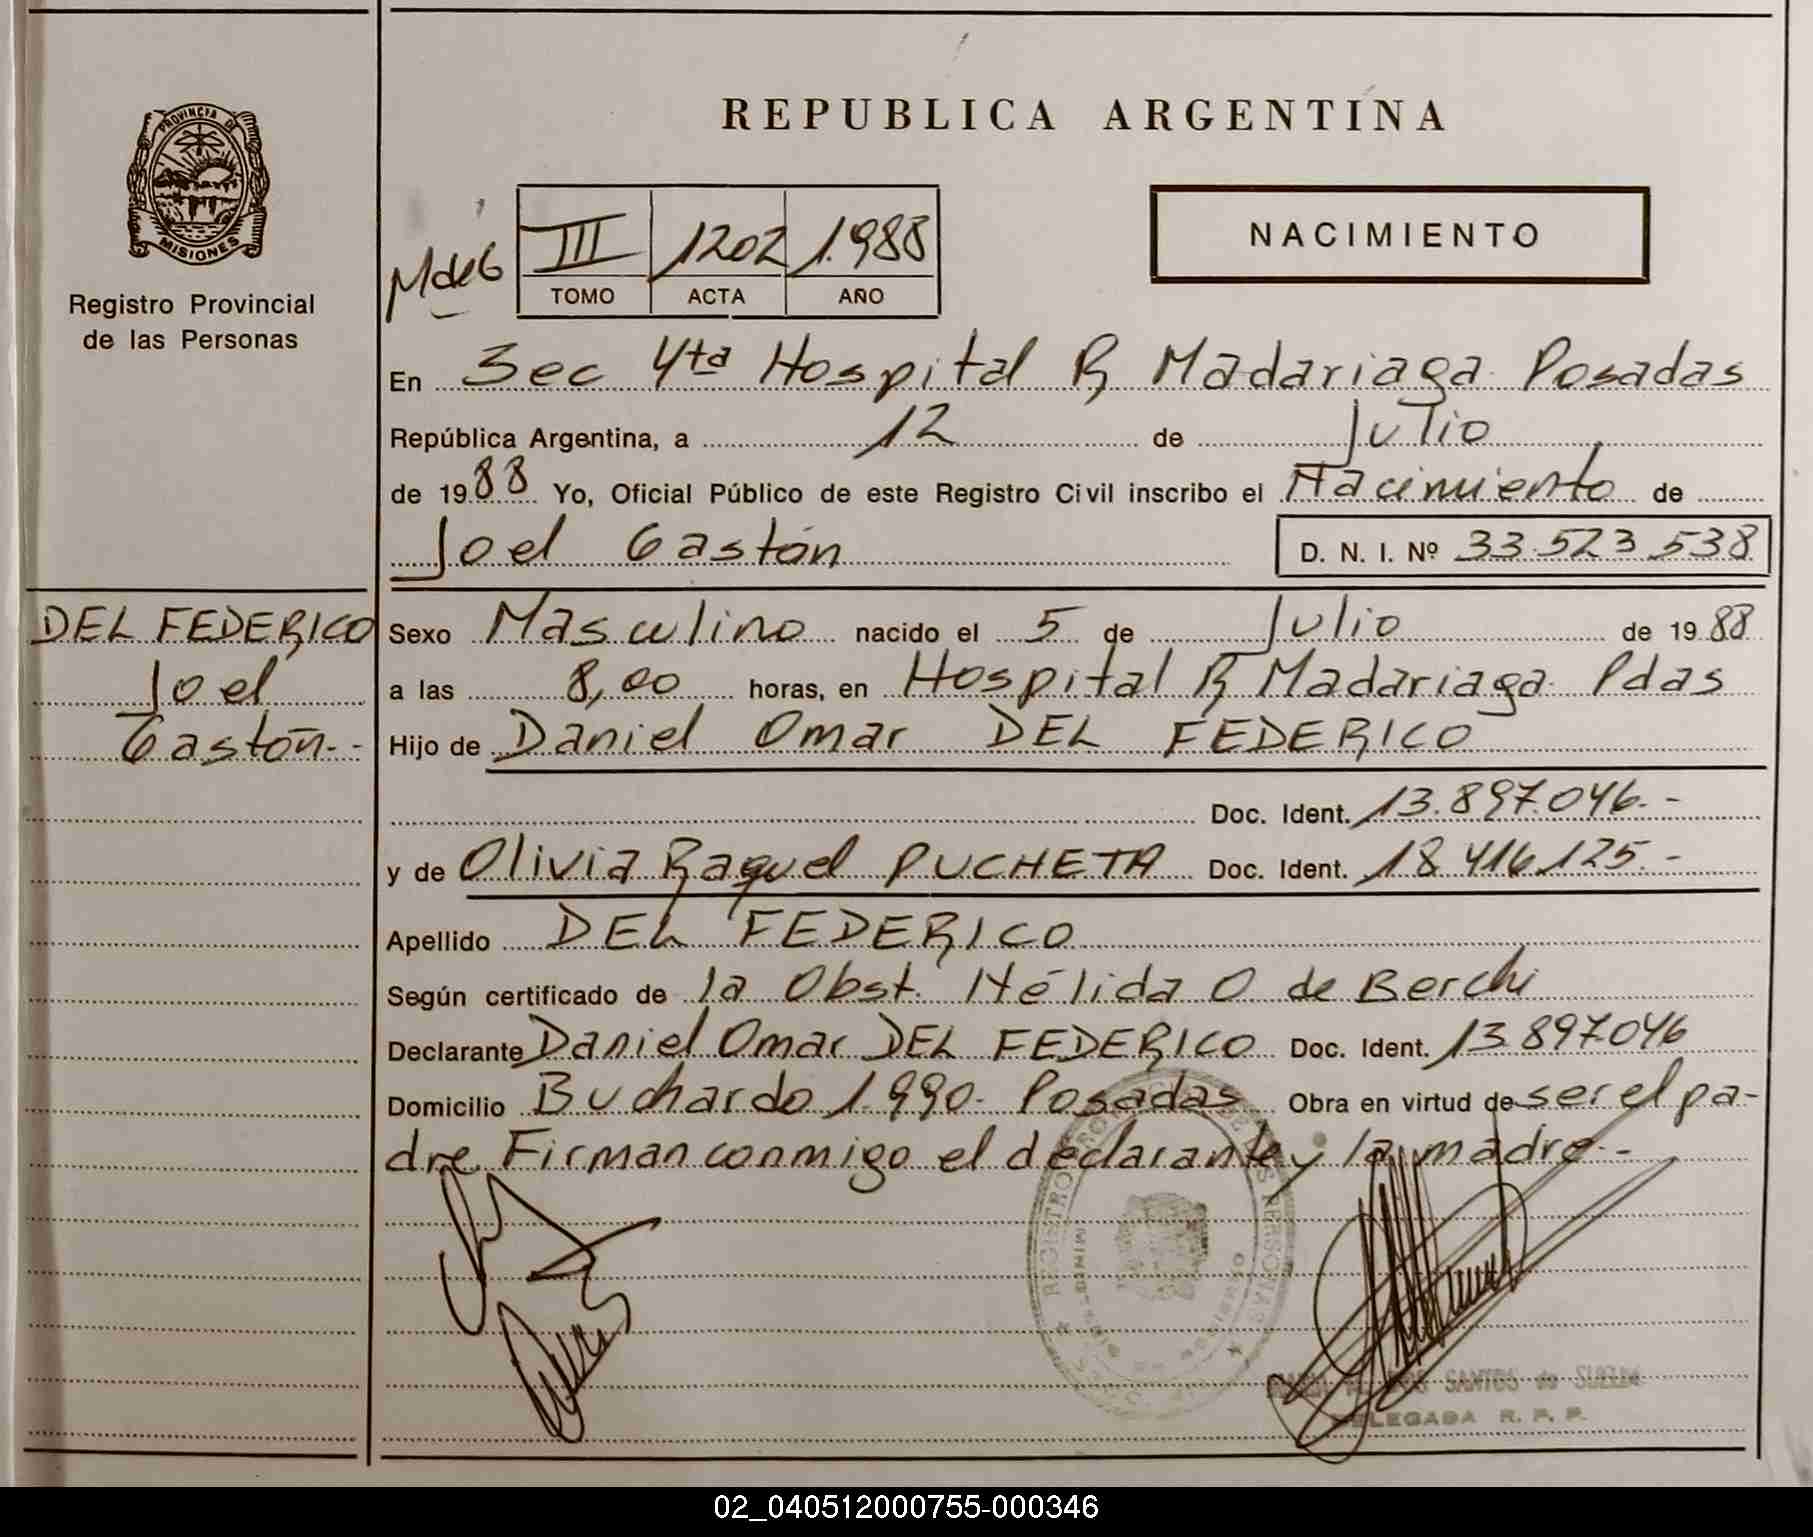 REPUBLICA ARGENTINA
PROVINCIA DE
MISIONES
Registro Provincial
de las Personas
III 1202 1.988
TOMO ACTA AÑO
NACIMIENTO
En Sec 4ta Hospital R Madariaga Posadas
República Argentina, a 12 de Julio
de 1988 Yo, Oficial Público de este Registro Civil inscribo el Nacimiento de
Joel Gastón D. N. I. Nº 33.523.538
DEL FEDERICO
Joel
Gastón.-
Sexo Masculino nacido el 5 de Julio de 1988
a las 8,00 horas, en Hospital R Madariaga Pdas
Hijo de Daniel Omar DEL FEDERICO
Doc. Ident. 13.897.046.-
y de Olivia Raquel PUCHETA Doc. Ident. 18.416.125.-
Apellido DEL FEDERICO
Según certificado de la Obst. Nélida O de Berchi
Declarante Daniel Omar DEL FEDERICO Doc. Ident. 13.897.046
Domicilio Buchardo 1.990. Posadas Obra en virtud de ser el pa-
dre. Firman conmigo el declarante y la madre.-
REGISTRO DE LAS PERSONAS
SANTOS de
DELEGADA R. P. P.
02_040512000755-000346